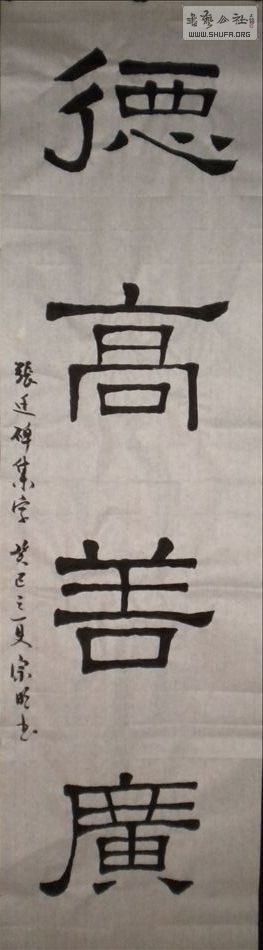 德高善廣
張遷碑集字 癸巳之夏宗明书
書藝公社
WWW.SHUFA.ORG